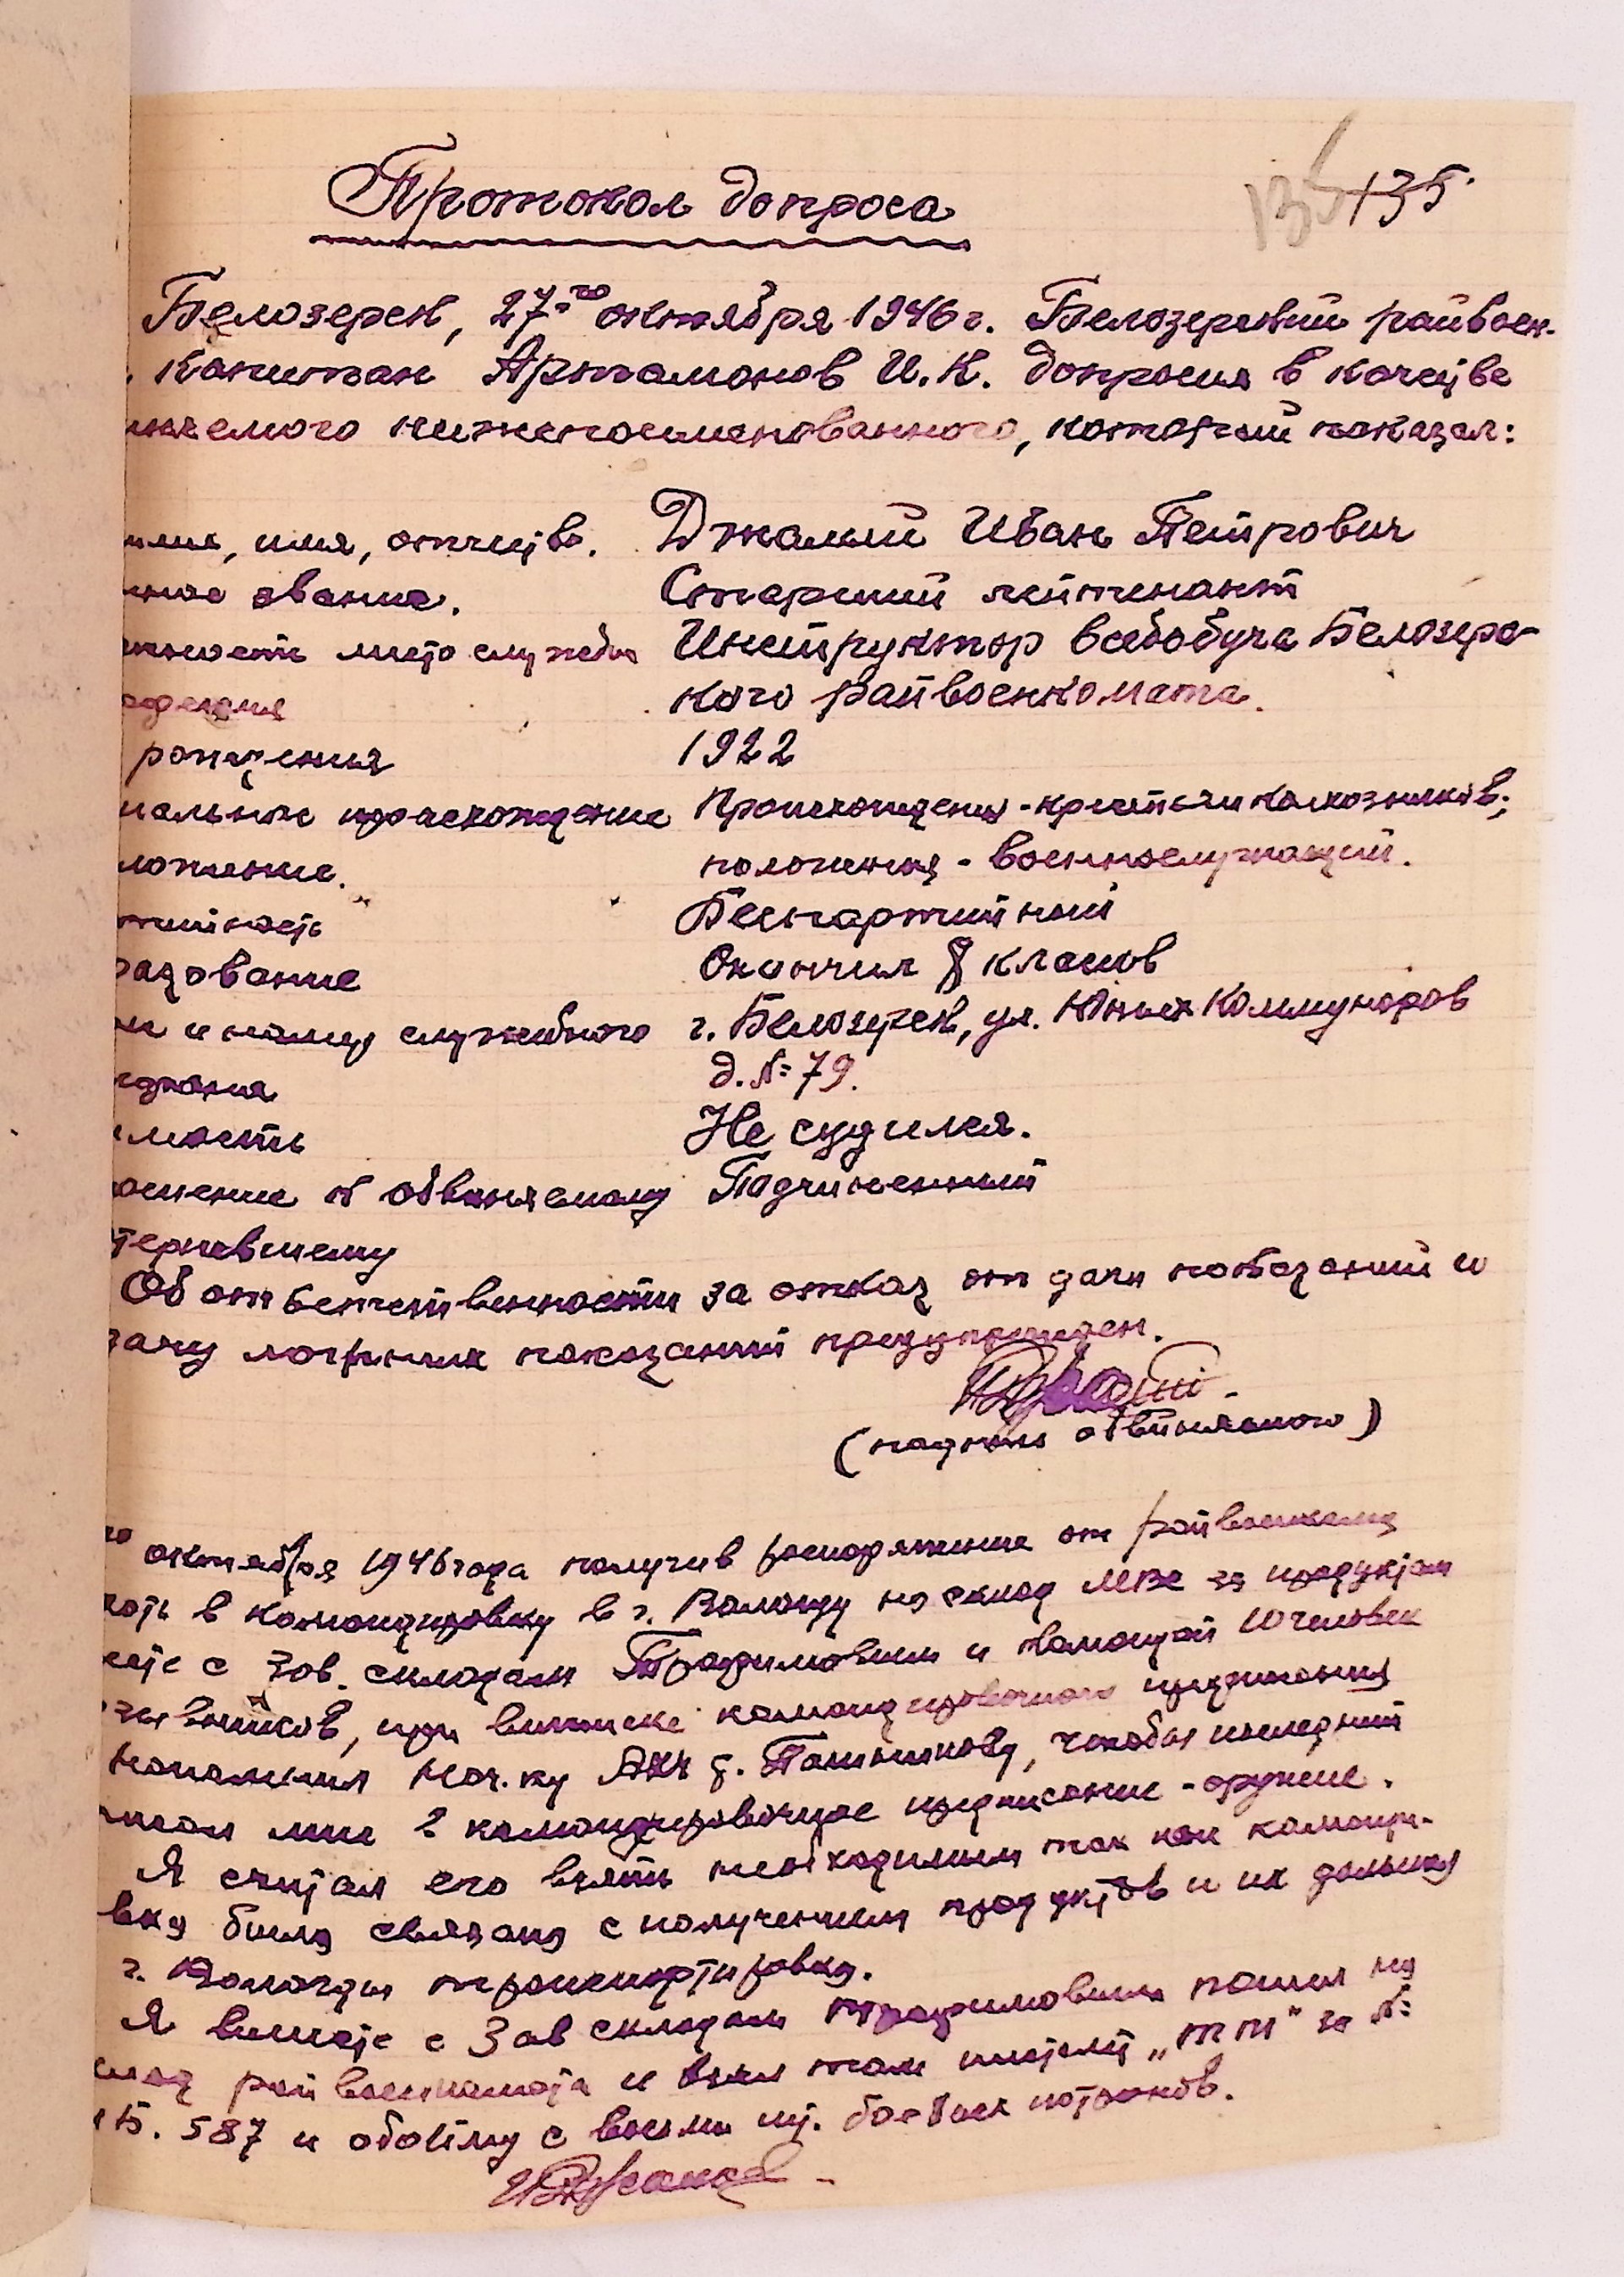 135
Протокол допроса
Белозерск, 27-го октября 1946 г. Белозерский райвоен-
Капитан Артамонов И.К. допросил в качестве
няемого нижепоименованного, который показал:
илия, имя, отчество. Джалий Иван Петрович
нное звание. Старший лейтенант
жность место службы Инструктор всевобуча Белозерс-
кого райвоенкомата.
рождения 1922
иальное происхождение Происхождения - крестьян колхозников;
ложение. положения - военнослужащий.
тийность Беспартийный
разование Окончил 8 классов
и номер служебного г. Белозерск, ул. Юных Коммунаров
д. № 79.
имость Не судился.
ошение к обвиняемому Подчиненный
терпевшему
Об ответственности за отказ от дачи показаний и
дачу ложных показаний предупрежден.
(подпись обвиняемого)
го октября 1946 года получив распоряжение от райвоенкома
хать в командировку в г. Вологду на склад МВС за продуктами
месте с Зав. складом Трофимовым и командой 10 человек
призывников, при выписке командировочного предписания
напомнил нач-ку АХЧ т. Паньшкову, чтобы последний
писал мне в командировочное предписание - оружие.
Я считал его взять необходимым так как команди-
вка была связана с получением продуктов и их дальней
г. Вологды транспортировка.
Я вместе с Зав складом Трофимовым пошел на
склад райвоенкомата и взял там пистолет „ТТ" за №
587 и обойму с восьми шт. боевых патронов.